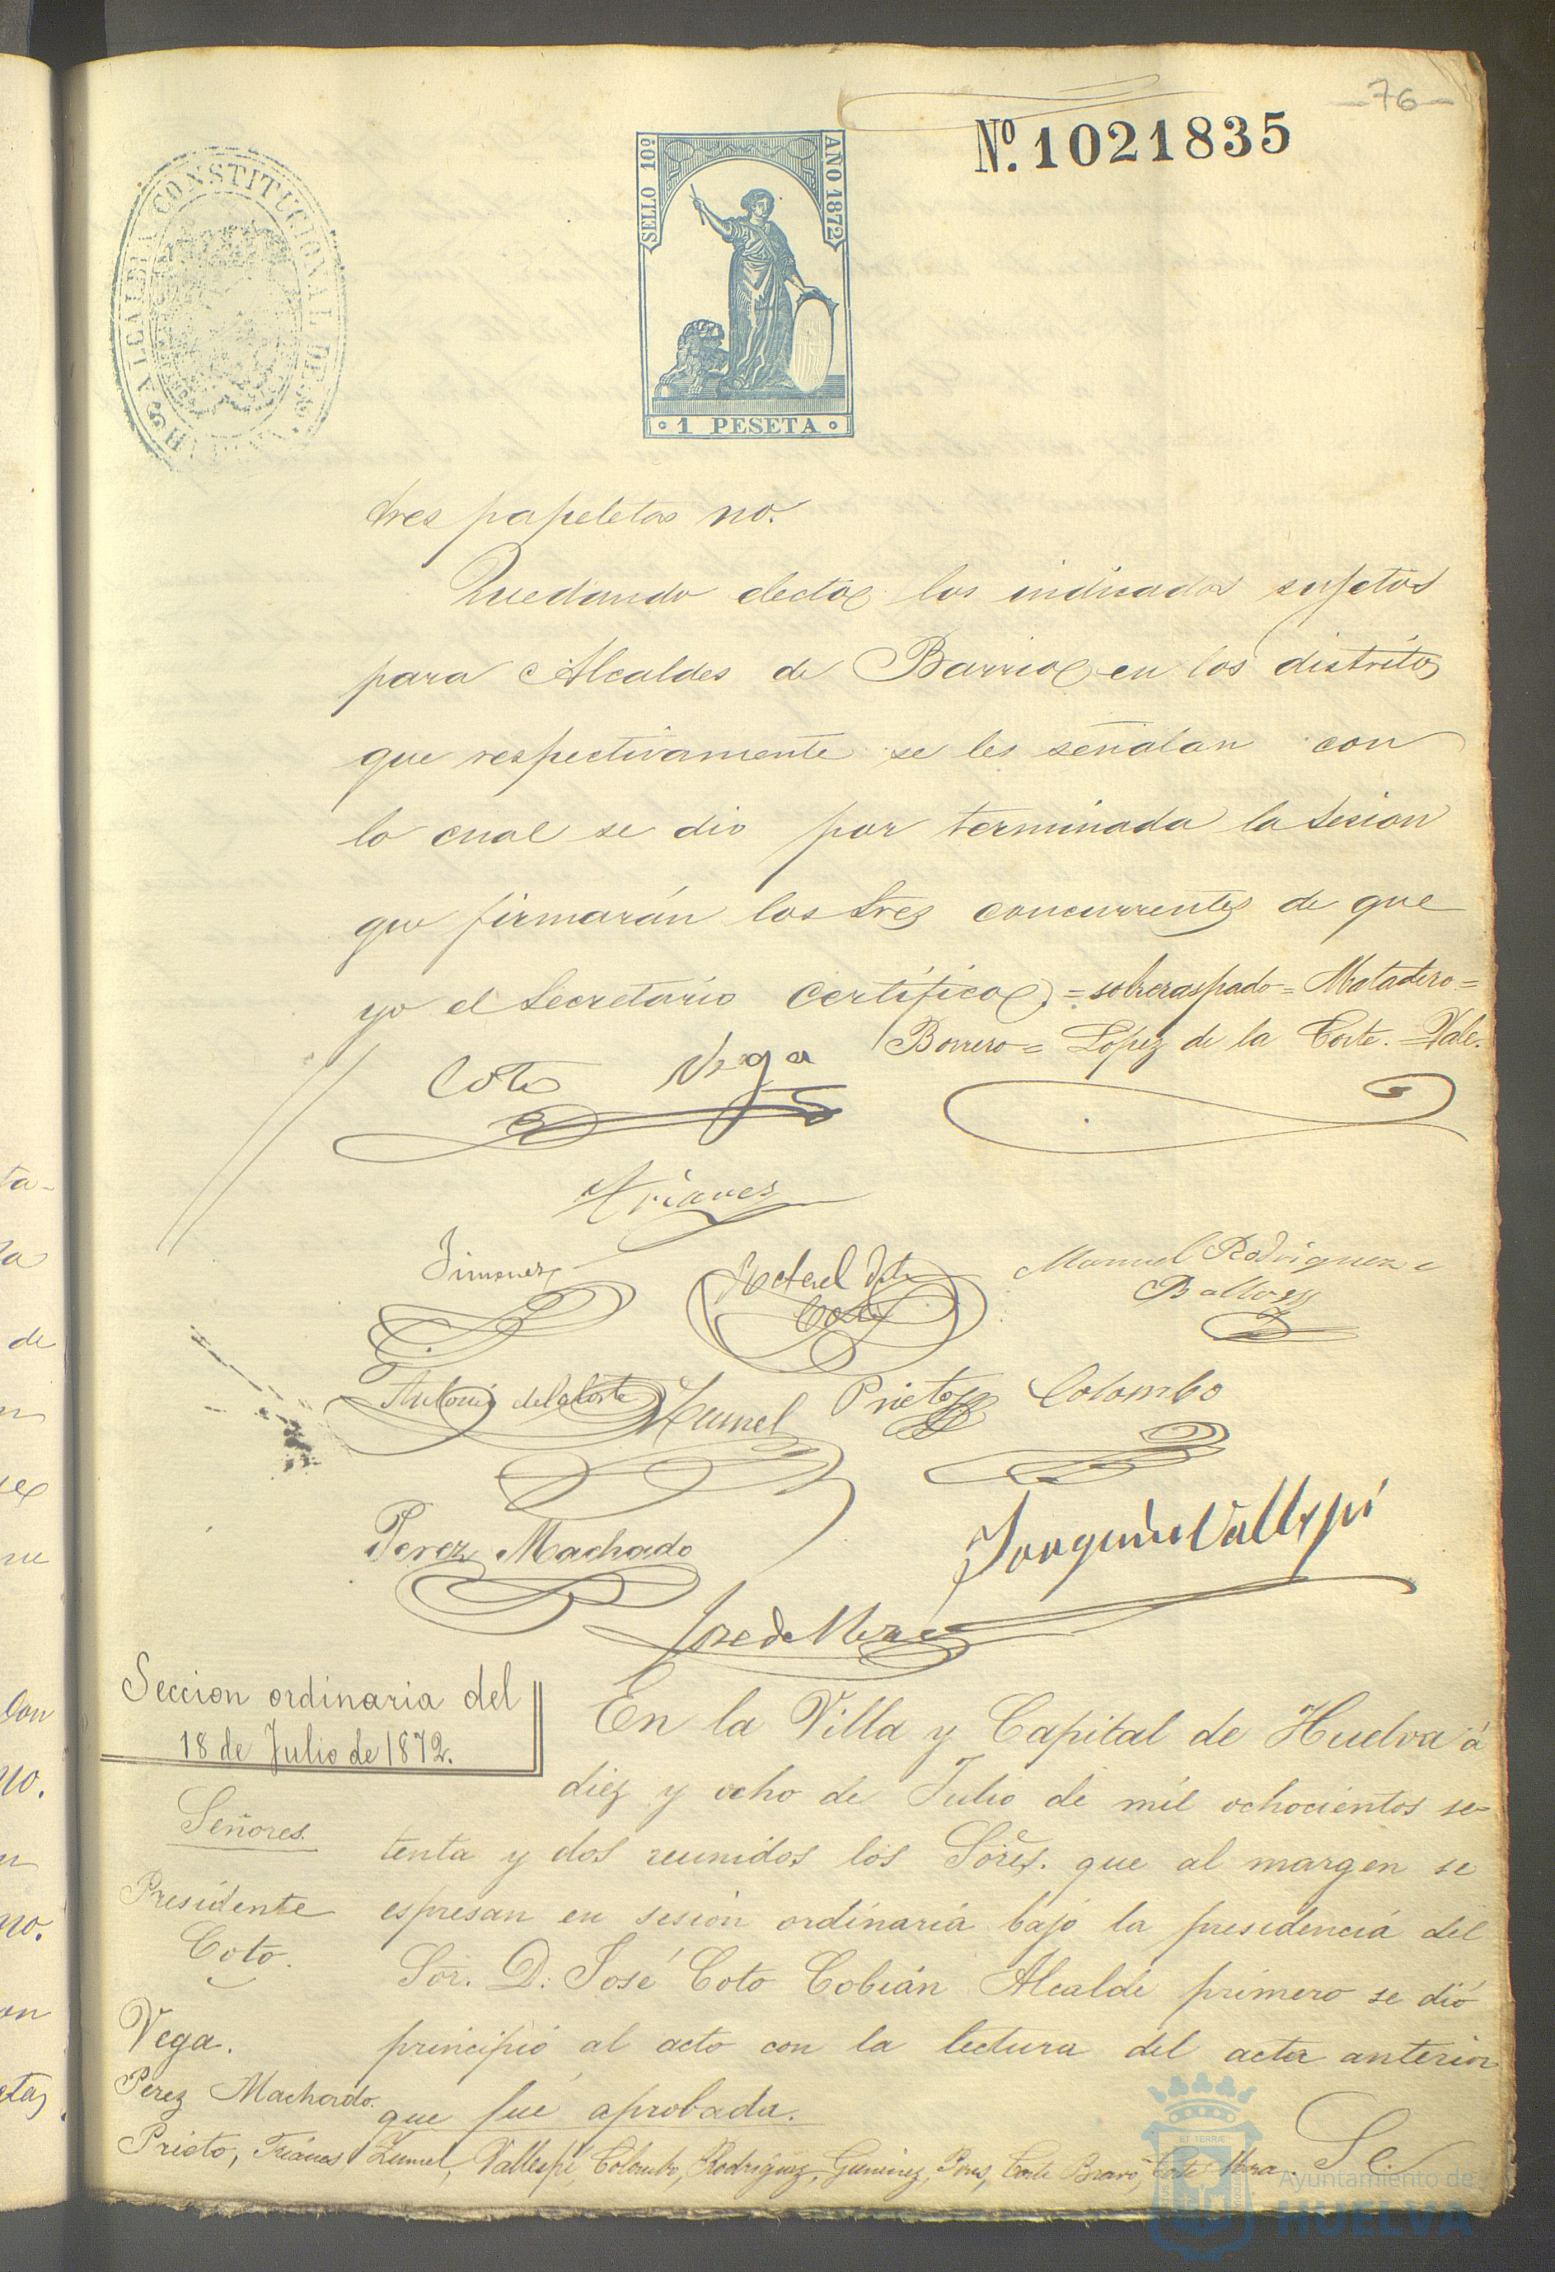 -76-
Nº. 1021835
SELLO 10º
AÑO 1872
1 PESETA
ALCALDIA CONSTITUCIONAL DE
tres papeletas no.
Quedando electos los indicados sujetos
para Alcaldes de Barrios en los distritos
que respectivamente se les señalan con
lo cual se dio por terminada la Sesion
que firmarán los Sres concurrentes de que
yo el Secretario Certifico. = sobreraspado = Matadero =
Borrero = Lopez de la Corte. = Vale.
Coto Vega
Trianes
Jimenez
Rafael de la
Corte
Manuel Rodriguez
Antonio de la Corte
Zumel
Prieto
Colombo
Perez Machado
Joaquin Vallespi
José de Mora
Seccion ordinaria del
18 de Julio de 1872.
Señores.
Presidente
Coto.
Vega.
Perez Machado.
En la Villa y Capital de Huelva á
diez y ocho de Julio de mil ochocientos se-
tenta y dos reunidos los Sores. que al margen se
espresan en sesion ordinaria bajo la presidencia del
Sor. D. José Coto Cobián Alcalde primero se dió
principió al acto con la lectura del acta anterior
que fué aprobada.
Prieto, Trianes Zumel, Vallespi, Colombo, Rodriguez, Gimenez, Pons, Corte Bravo, Corte Mora. Se
Ayuntamiento de
HUELVA